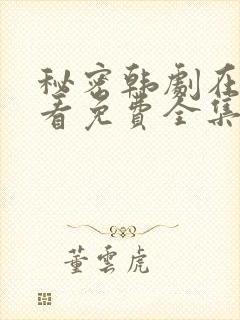 秘密韩剧在
看免費全集
董雲虎